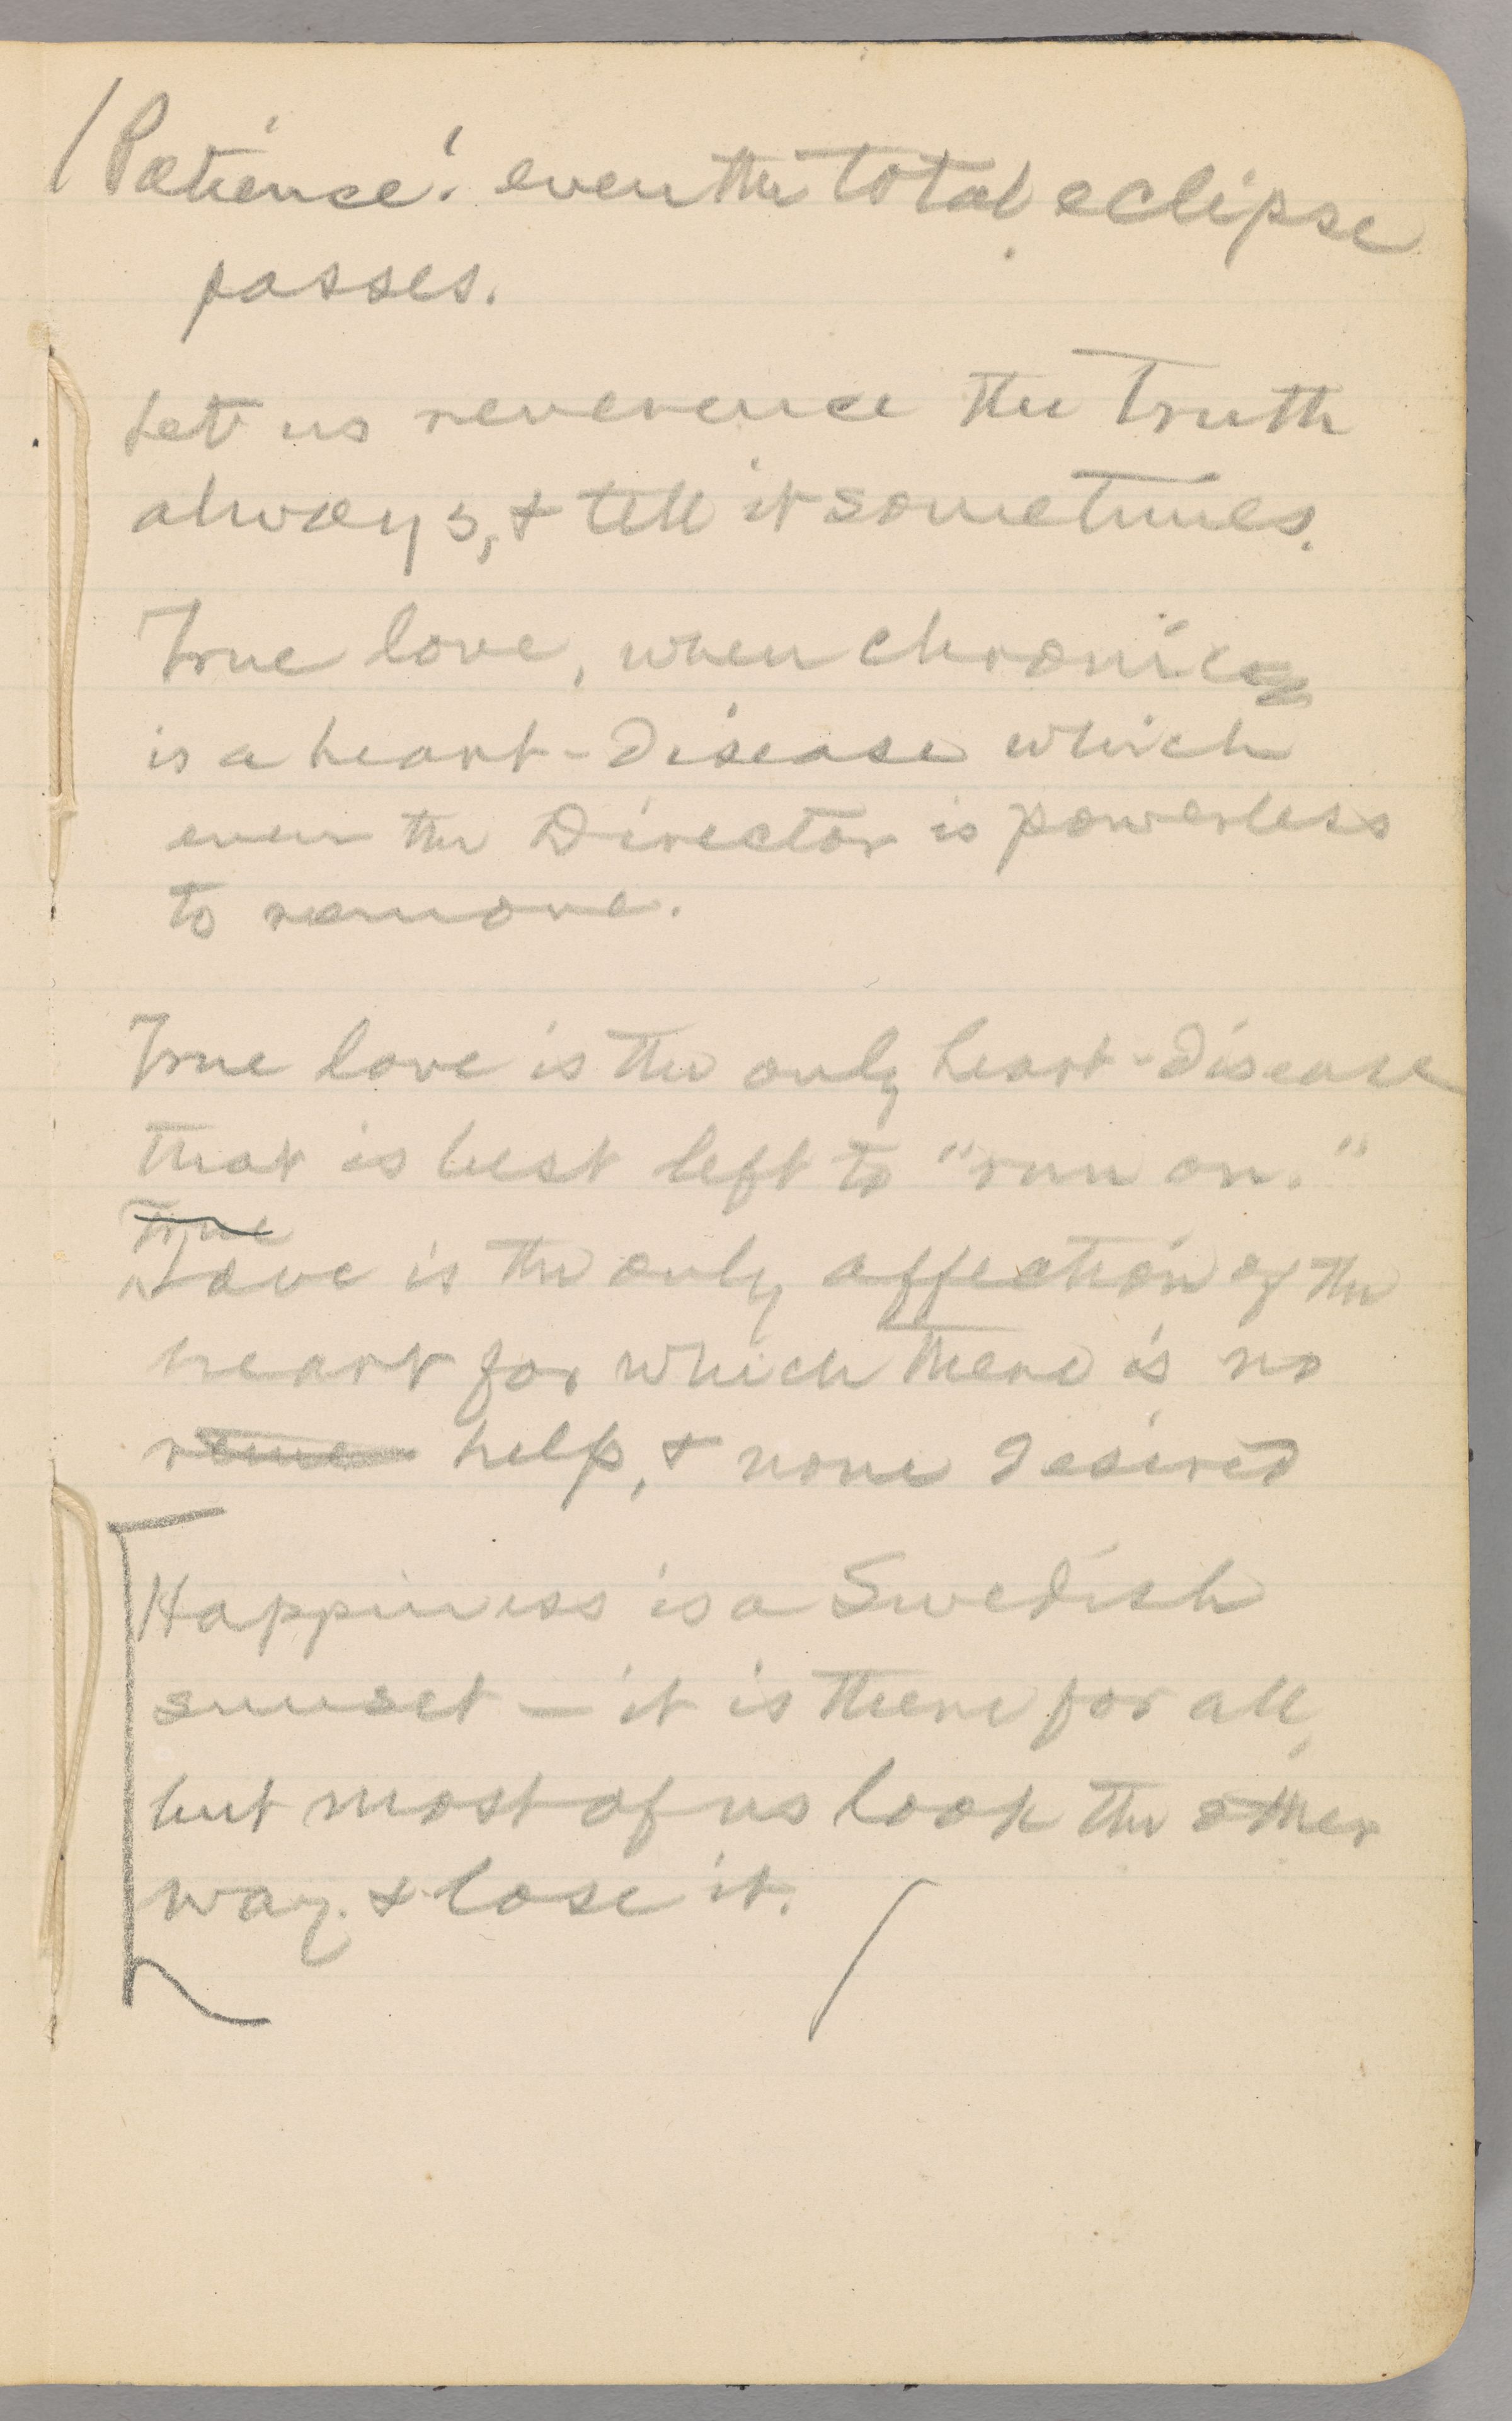 Patience! even the total eclipse
passes.
Let us reverence the Truth
always, & tell it sometimes.
True love, when chronic
is a heart-disease which
even the Director is powerless
to remove.
True love is the only heart-disease
that is best left to "run on."
True
Love is the only affection of the
heart for which there is no
reme help, & none desired
Happiness is a Swedish
sunset — it is there for all,
but most of us look the other
way & lose it.